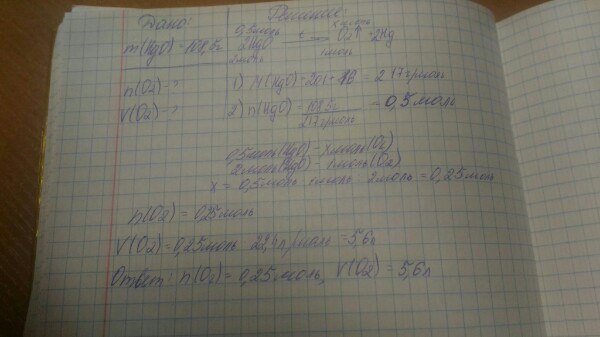 Дано:
Решение:
m(HgO)=108,5г
0,5моль xмоль
2HgO t→ O2↑+2Hg
2моль 1моль
n(O2)-?
1) M(HgO)=201+16=217г/моль
V(O2)-?
2) n(HgO)=108,5г/217г/моль=0,5моль
0,5моль(HgO)-xмоль(O2)
2моль(HgO)-1моль(O2)
x=0,5моль·1моль:2моль=0,25моль
n(O2)=0,25моль
V(O2)=0,25моль·22,4л/моль=5,6л
Ответ: n(O2)=0,25моль, V(O2)=5,6л